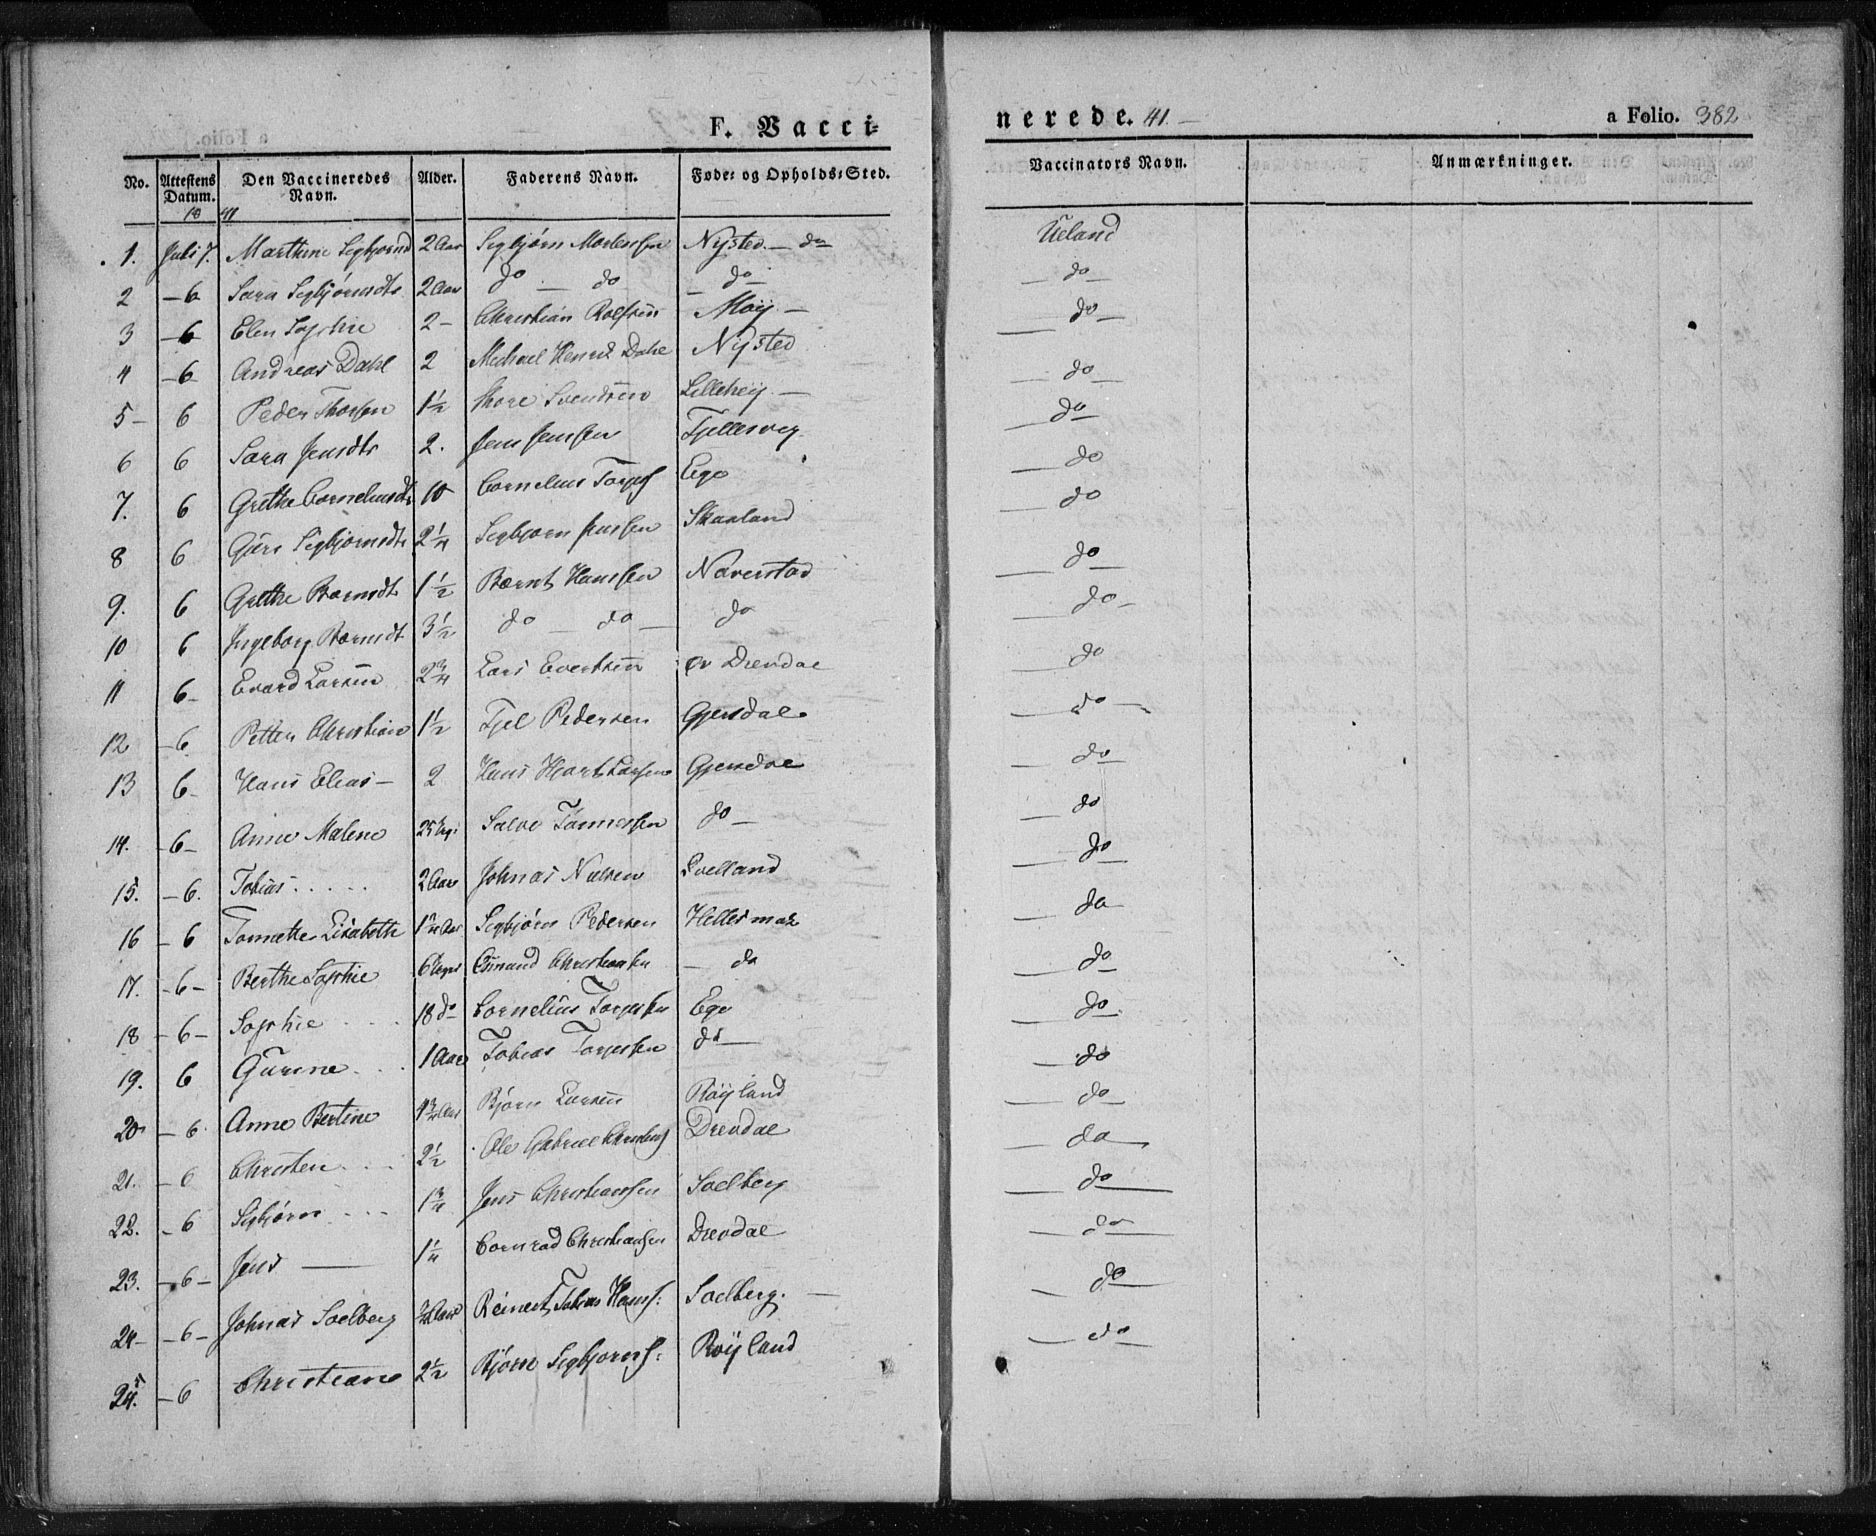 F. Vacci=
nerede. 41.
a Folio. 382
No. | Attestens Datum. | Den Vaccineredes Navn. | Alder. | Faderens Navn. | Føde= og Opholds=Sted. | Vaccinators Navn. | Anmærkninger.
18 41
1. | Juli 7. | Marthine Segbjornd | 2 Aar | Segbjørn Mortensen | Nysted — do | Ueland
2 | — 6 | Sara Segbjørnsdtr | 2 Aar | do — do | — do — | — do —
3 | — 6 | Elen Sophie | 2 — | Christian Rolfsen | Moy — | — do —
4 | — 6 | Andreas Dahl | 2 | Michael Henrik Dahl | Nysted | — do —
5 — | 6 | Peder Thorsen | 1½ | Thore Svendsen | Lillehey — | — do
6 | 6 | Sara Jensdtr | 2. | Jens Jensen | Fjellesveg | — do
7. | 6 | Grethe Corneliusdtr | 10 | Cornelius Torjes | Ege | — do
8 | 6 | Guri Segbjornsdtr | 2¼ | Segbjorn Jensen | Skaaland | — do —
9. | 6 | Grethe Berntsdtr | 1½ | Bærnt Hansen | Naverstad | — do —
10 | 6 | Ingeborg Berntsdt | 3½ | do — do — | do | — do
11 | 6 — | Evard Larsen | 2¾ | Lars Evertsen | øv Drevdal | — do —
12 | — 6 | Petter Christian | 1½ | Fjel Pedersen | Gjersdal | — do —
13 | 6 — | Hans Elias — | 2 | Hans Hjort Larsen | Gjersdal | — do
14. | — 6 — | Anne Malene | 25 Uger | Salve Tønnessen | do — | — do
15. | — 6. | Tobias . . . . . | 2 Aar | Johnas Nielsen | Qvelland | — do
16 | — 6 | Tomethe Lisabethe | Aar | Segbjørn Pedersen | Hellesmark | — do —
17. | — 6 — | Berthe Sophie | 6 Uger | Osmund Christiansen | — do | — do
18 | — 6 — | Sophie . . . . | 18 do | Cornelius Torjesen | Ege | — do
19. | 6 | Gurine . . . | 1 Aar | Tobias Torjesen | do — | — do
20 | — 6. | Anne Bertine | 1¾ Aar | Bjørn Larsen | Røyland | — do —
21. | — 6 | Christen . . . | 2½ | Ole Gabriel Christens | Drevdal | — do —
22. | — 6 | Segbjørn . . . | 1¾ | Jens Christiansen | Soelberg | — do —
23. | — 6 — | Jens — | 1¼ | Conrad Christiansen | Drevdal | — do —
24 — | — 6 — | Johnas Soelberg | Aar | Reinert Tobias Hans: | Soelberg. — | — do —
25. | — 6 | Christiane | 2½ | Bjørn Segbjorns: | Røyland